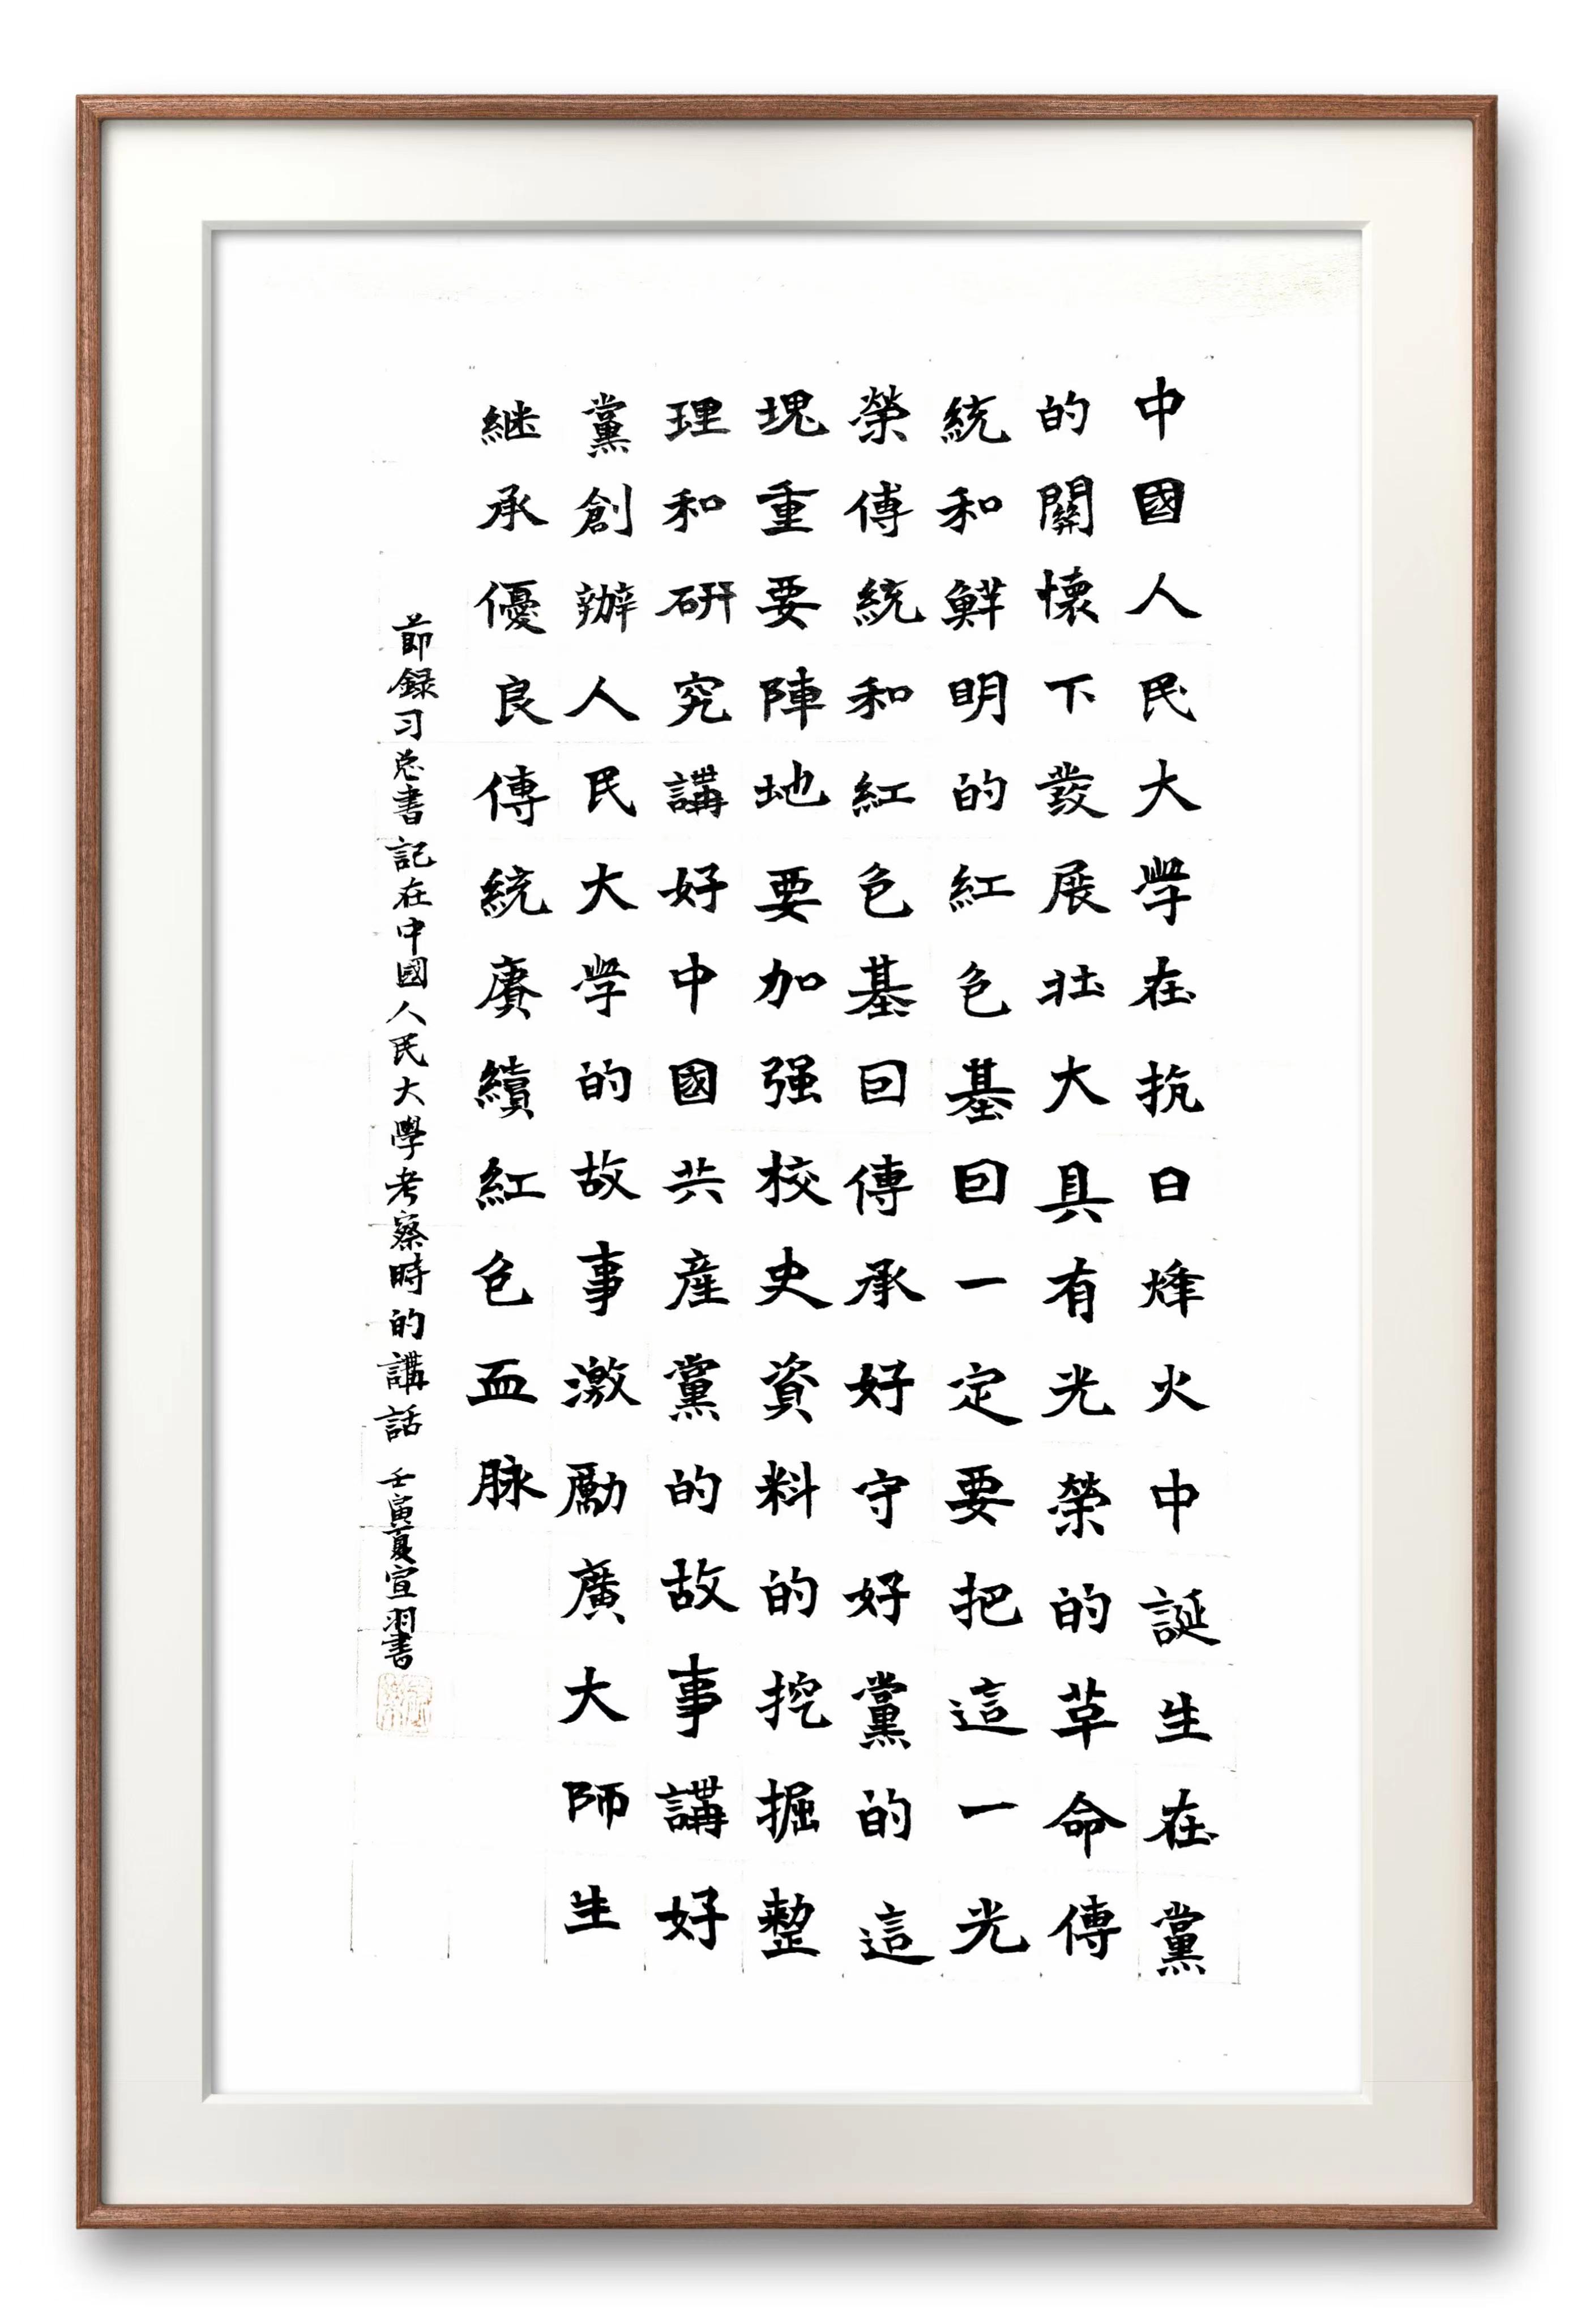 中國人民大學在抗日烽火中誕生在黨
的關懷下發展壯大具有光榮的革命傳
統和鮮明的紅色基因一定要把這一光
榮傳統和紅色基因傳承好守好黨的這
塊重要陣地要加强校史資料的挖掘整
理和研究講好中國共産黨的故事講好
黨創辦人民大學的故事激勵廣大師生
継承優良傳統賡續紅色血脉
節録习总書記在中國人民大學考察時的講話 壬寅夏宣羽書